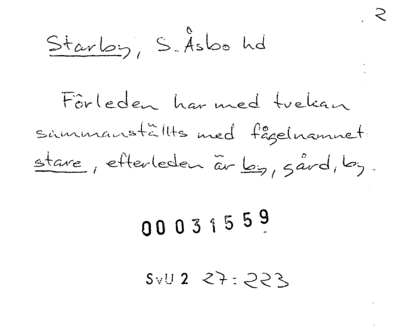 2
Starby, S. Åsbo hd
Förleden har med tvekan
sammanställts med fågelnamnet
stare, efterleden är by, gård, by.
00031559
SvU 2 27:223